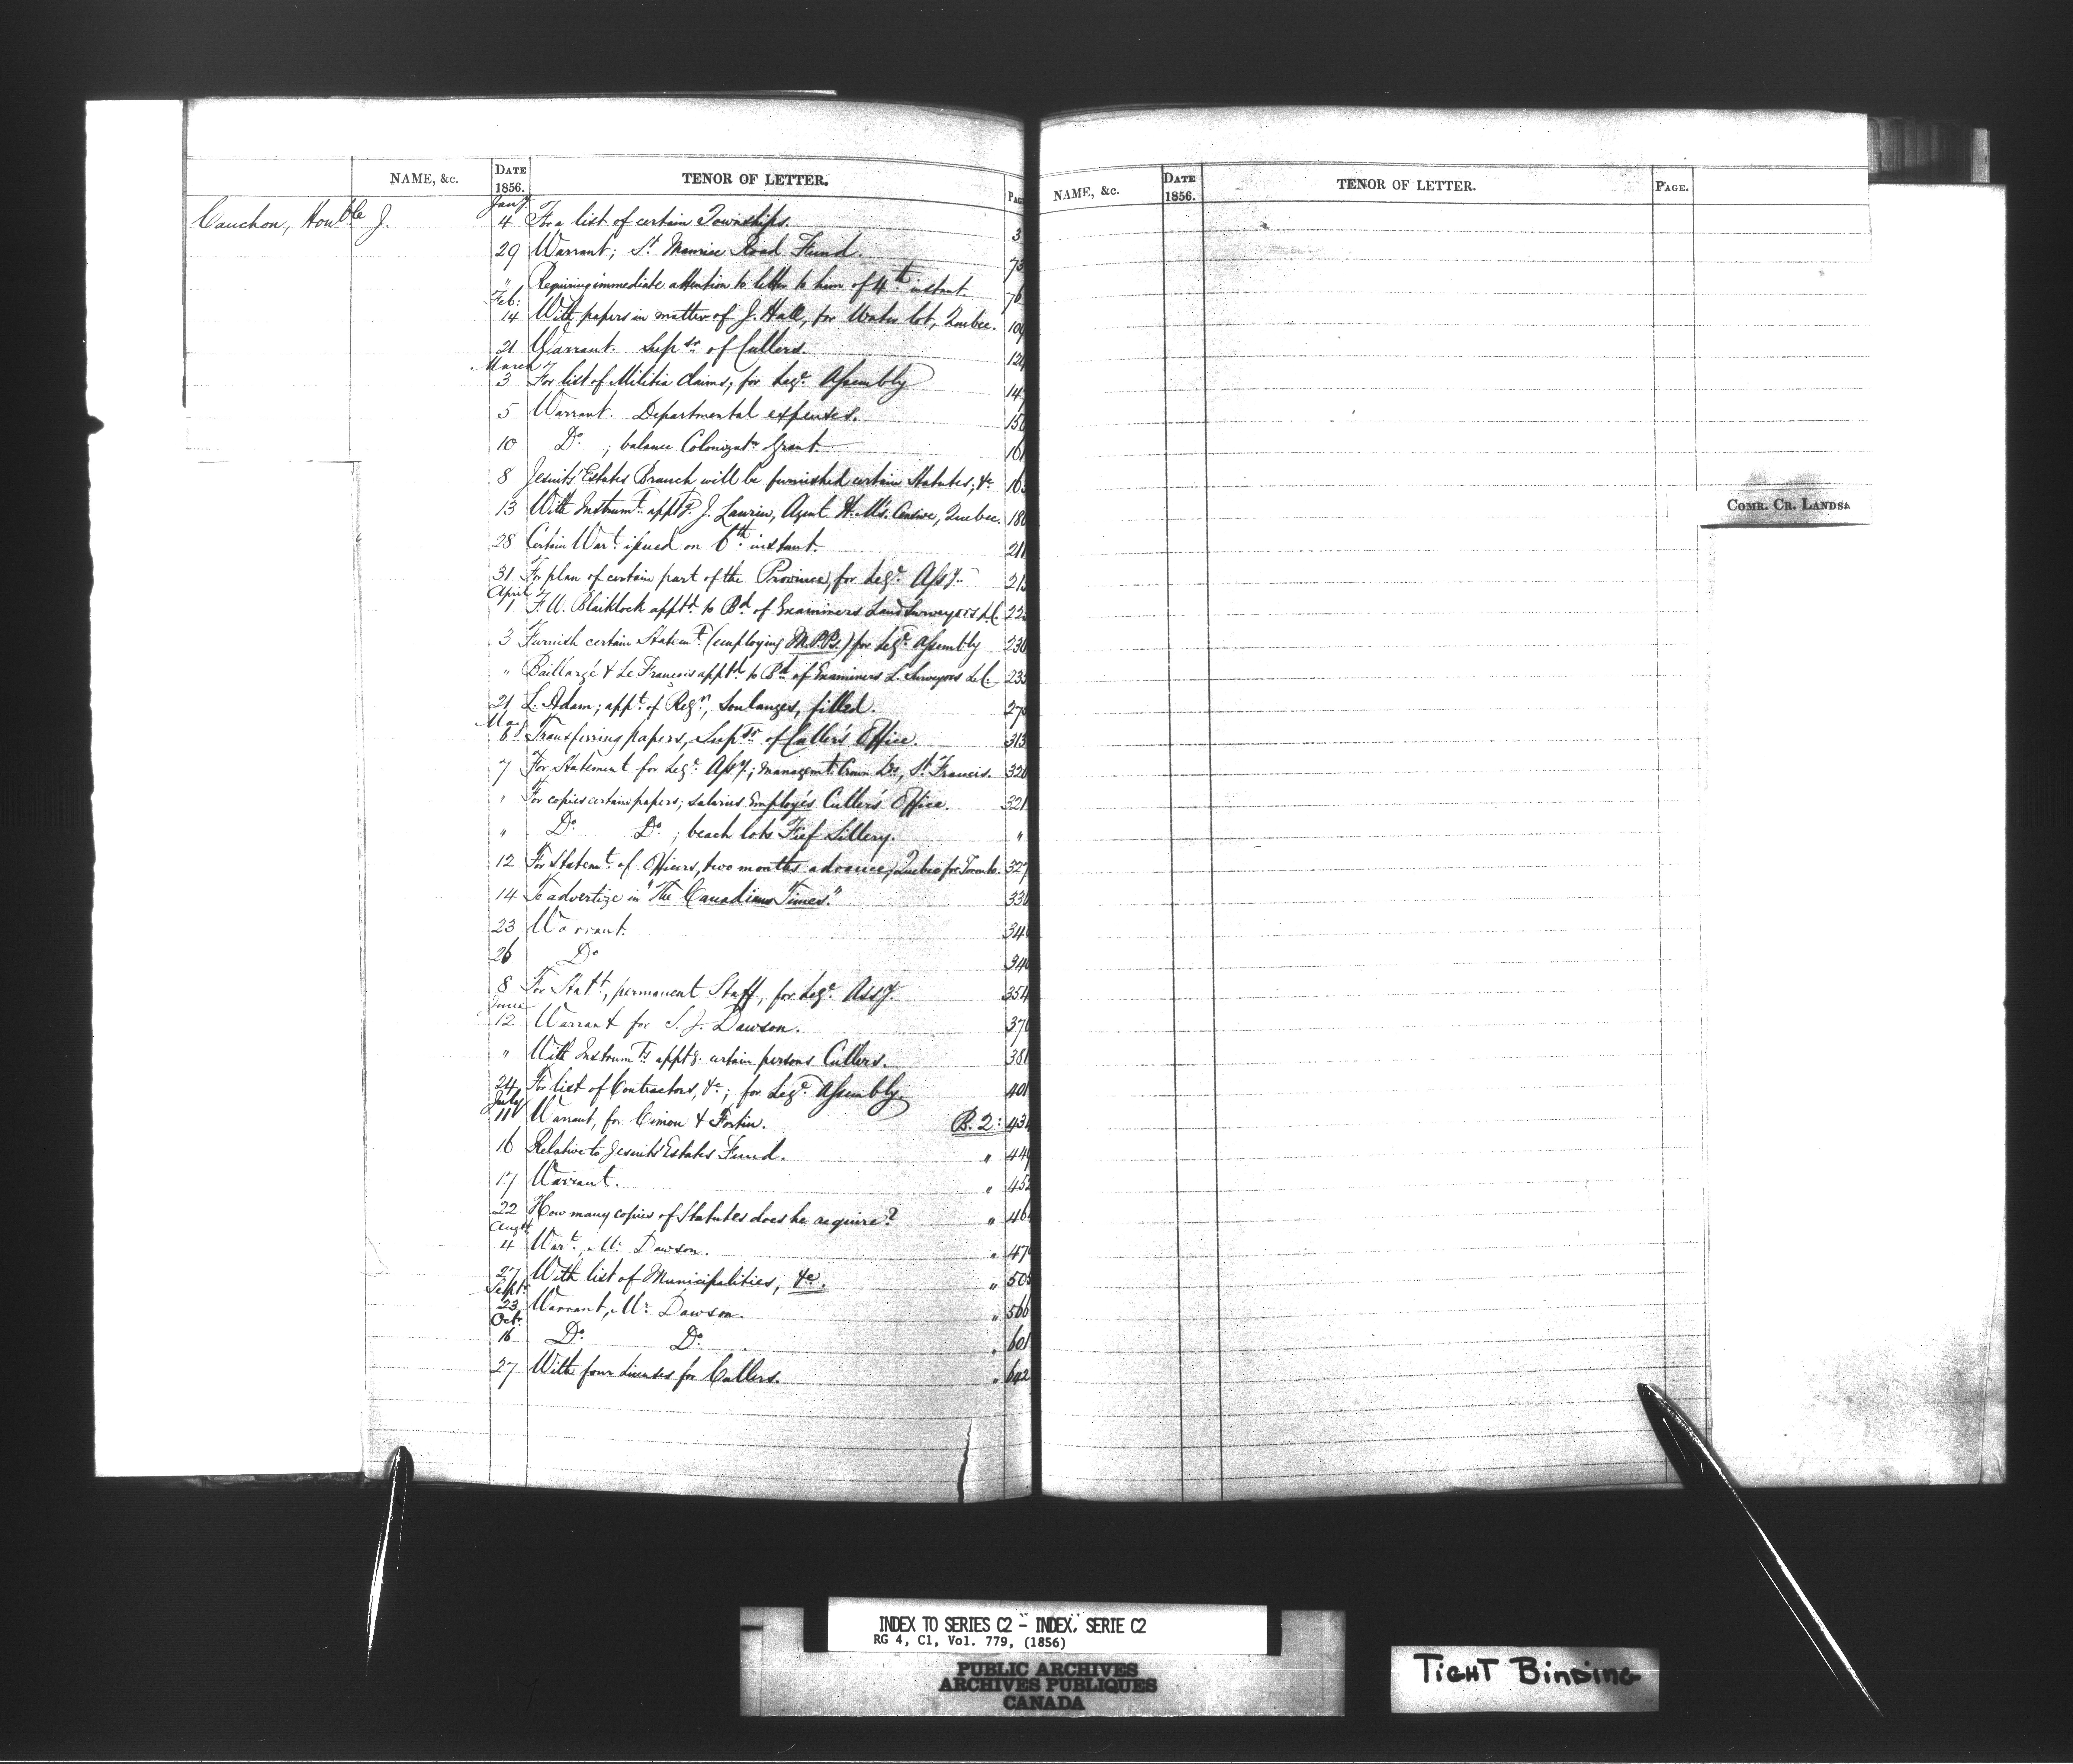 NAME, &c. DATE 1856. TENOR OF LETTER. PAGE
Cauchon, Honble J. Jany 4 For a list of certain Townships. 3
29 Warrant; St. Maurice Road Fund. 73
" Requiring immediate attention to letter to him of 4th instant. 76
Feb: 14 With papers in matter of J. Hall, for Water lot, Quebec. 109
21 Warrant. Supsr of Cullers. 124
March 3 For list of Militia Claims, for Legve Assembly 147
5 Warrant. Departmental expenses. 150
10 Do. ; balance Colonizatn Grant. 161
8 Jesuits' Estates Branch will be furnished certain Statutes, &c 163
13 With Instrumt. apptg. J. Laurin, Agent H.M's. Censive, Quebec. 180
28 Certain Wart. issued on 6th instant. 211
31 For plan of certain part of the Province, for Legve Assy. 215
April 1 F. W. Blaiklock apptd to Bd of Examiners Land Surveyors L.C. 223
3 Furnish certain Statemt (employing M.P.Ps.) for Legve Assembly 230
" Baillargé & Le François apptd to Bd of Examiners L. Surveyors L.C. 235
21 L. Adam; appt. of Regr., Soulanges, filled. 270
May 6 Transferring papers, Supsr of Culler's Office. 313
7 For Statement for Legve Assy.; Managemt. Crown Lds, St. Francis. 320
" For copies certain papers; salaries Employés Culler's Office. 321
" Do. Do. ; beach lots Fief Sillery. "
12 For Statemt. of Officers, two months advance, Quebec for Toronto. 327
14 To advertize in "The Canadian Times." 330
23 Warrant. 340
26 Do 340
8 For Statt, permanent Staff, for Legve Assy. 354
June 12 Warrant for S. J. Dawson. 370
" With Instrumts apptg. certain persons Cullers. 381
24 For list of Contractors, &c; for Legve Assembly. 401
July 11 Warrant, for Cimon & Fortin. B. 2: 434
16 Relative to Jesuits' Estates Fund. " 449
17 Warrant. " 452
22 How many copies of Statutes does he require? " 46
Augt 4 Wart., Mr. Dawson. " 47
27 With list of Municipalities, &c. " 505
Septr 23 Warrant, Mr. Dawson. " 566
Octr 16 Do. Do. " 601
27 With four licenses for Cullers. " 642
NAME, &c. DATE 1856. TENOR OF LETTER. PAGE.
COMR. CR. LANDS
INDEX TO SERIES C2 - INDEX, SERIE C2
RG 4, C1, Vol. 779, (1856)
PUBLIC ARCHIVES
ARCHIVES PUBLIQUES
CANADA
TIGHT BINDING